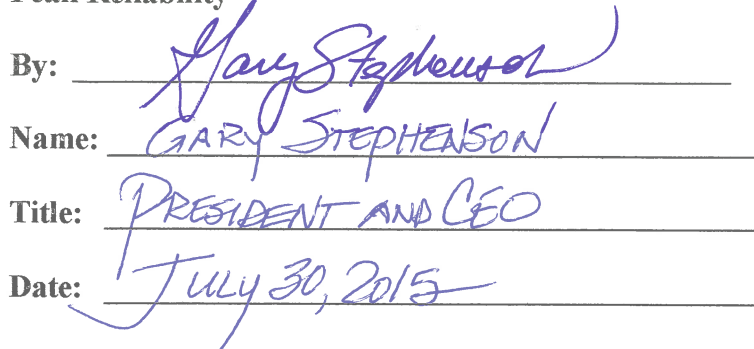 Peak Reliability
By: Gary Stephenson
Name: GARY STEPHENSON
Title: PRESIDENT AND CEO
Date: JULY 30, 2015